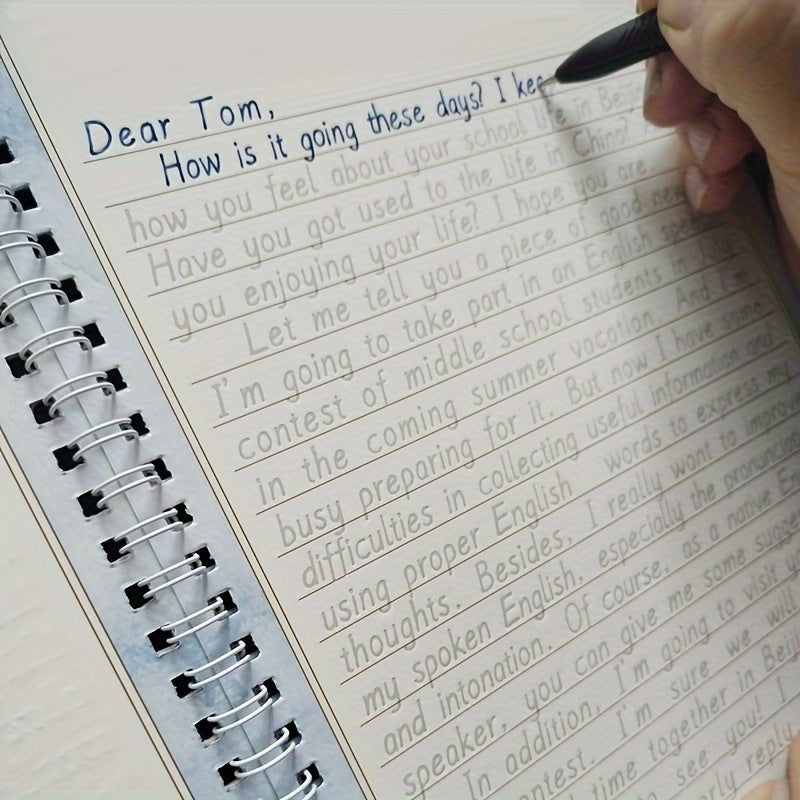 Dear Tom,
How is it going these days? I kee
how you feel about your school life in Beijin
Have you got used to the life in China?
you enjoying your life? I hope you are
Let me tell you a piece of good new
I'm going to take part in an English spee
contest of middle school students in July
in the coming summer vacation. And I'm
busy preparing for it. But now I have some
difficulties in collecting useful information and
using proper English words to express my
thoughts. Besides, I really want to improv
my spoken English, especially the pronunciati
and intonation. Of course, as a native En
speaker, you can give me some sugge
In addition, I'm going to visit y
ontest. I'm sure we will
time together in Beij
to see you! I
rly reply